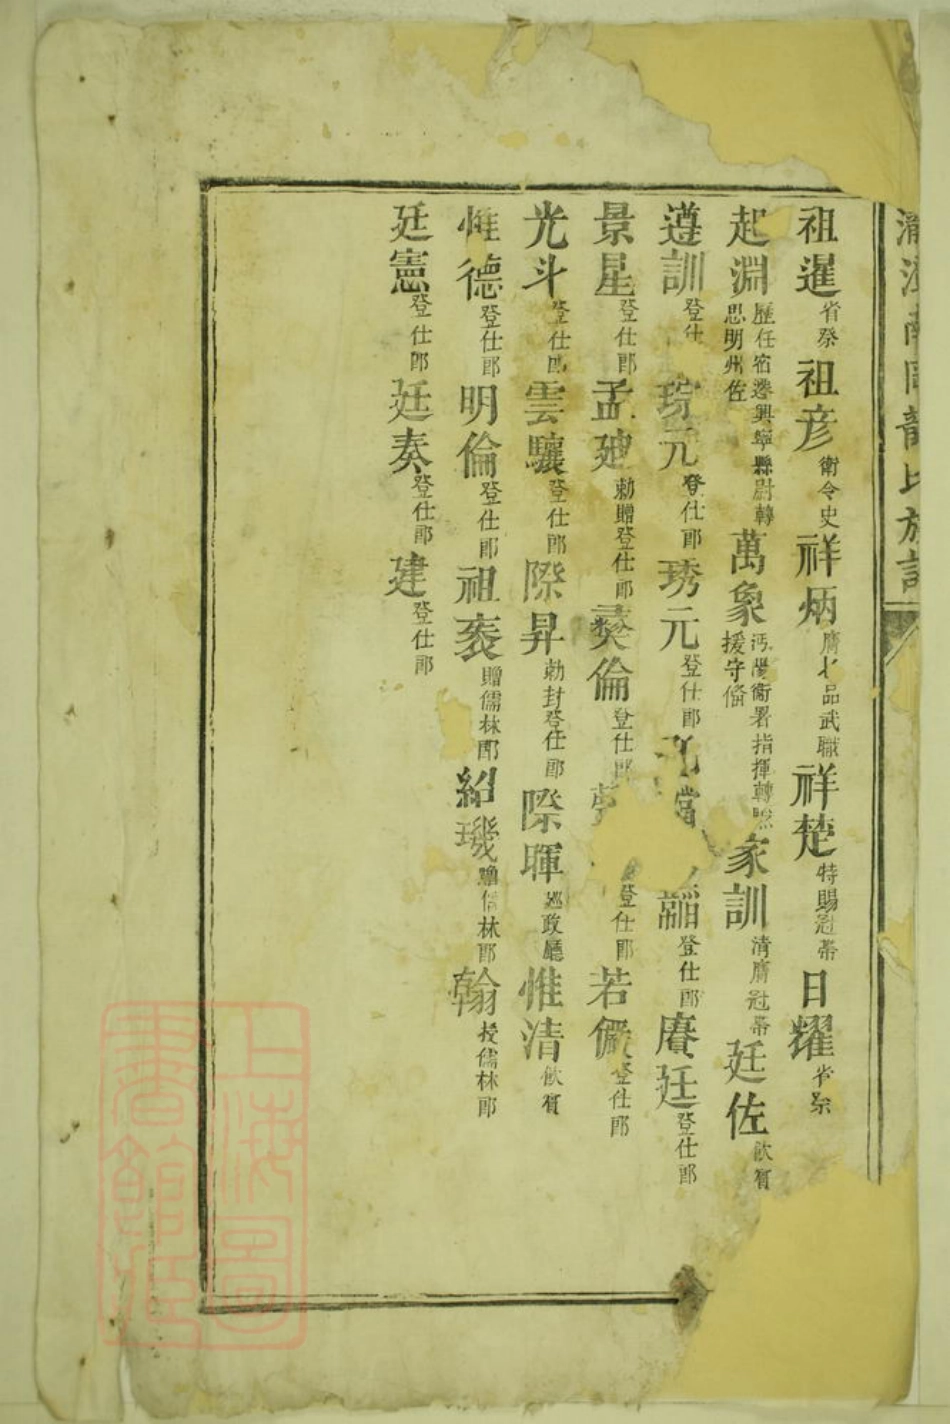 祖暹省祭祖彦衛令史祥炳膺七品武職祥楚特賜冠帶日耀省祭
起淵歷任宿遷興寧縣尉轉思明州佐萬象沔陽衛署指揮轉援守俻家訓清膺冠帶廷佐飲賓
遵訓登仕琮元登仕郎琇元登仕郎登仕郎賡廷登仕郎
景星登仕郎孟迪勅贈登仕郎彛倫登仕郎登仕郎若儼登仕郎
光斗登仕郎雲驤登仕郎際昇勅封登仕郎際暉廵政廳惟清飲賓
惟德登仕郎明倫登仕郎祖袠贈儒林郎紹璣贈儒林郎翰授儒林郎
廷憲登仕郎廷奏登仕郎建登仕郎
南龍氏族譜
上海圖書館藏